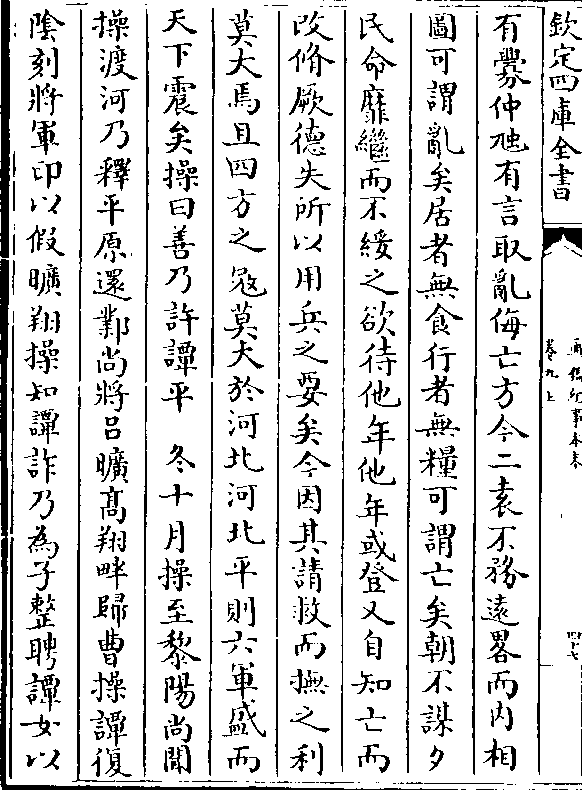 欽定四庫全書
兩漢紀事本末
卷九上
四十七
有釁仲虺有言取亂侮亡方今二袁不務遠畧而内相
圖可謂亂矣居者無食行者無糧可謂亡矣朝不謀夕
民命靡繼而不綏之欲待他年他年或登又自知亡而
改脩厥德失所以用兵之要矣今因其請救而撫之利
莫大焉且四方之冦莫大於河北河北平則六軍盛而
天下震矣操曰善乃許譚平　冬十月操至黎陽尚聞
操渡河乃釋平原還鄴尚將吕曠髙翔畔歸曹操譚復
隂刻將軍印以假曠翔操知譚詐乃為子整聘譚女以